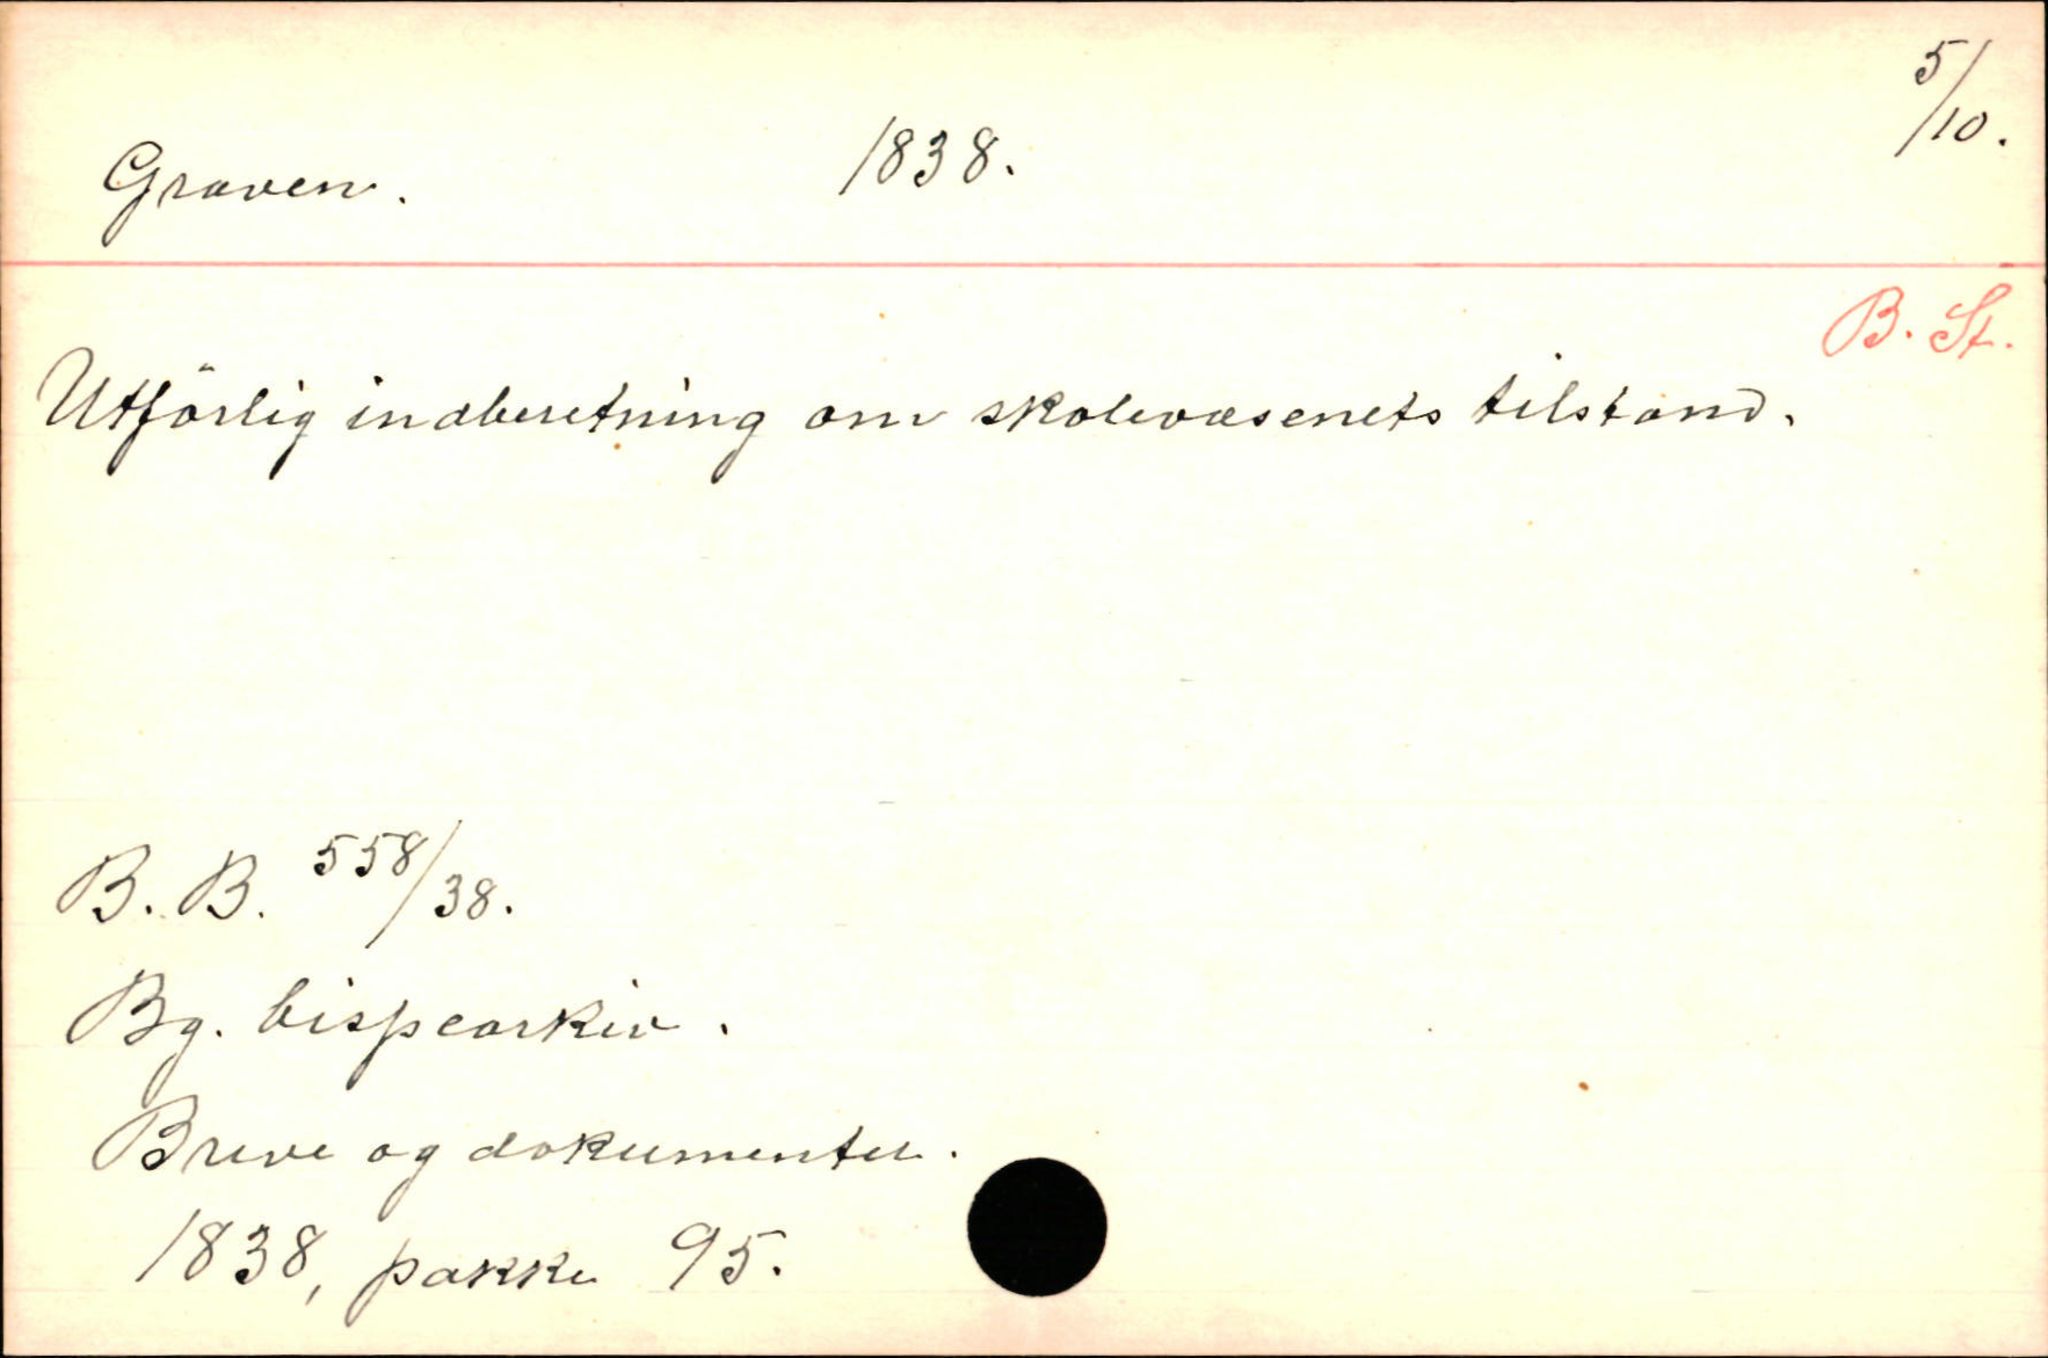 Graven. 1838. 5/10.
B. St.
Utförlig indberetning om skolevæsenets tilstand.
B. B. 558/38.
Bg. bispearkiv.
Breve og dokumenter.
1838, pakke 95.